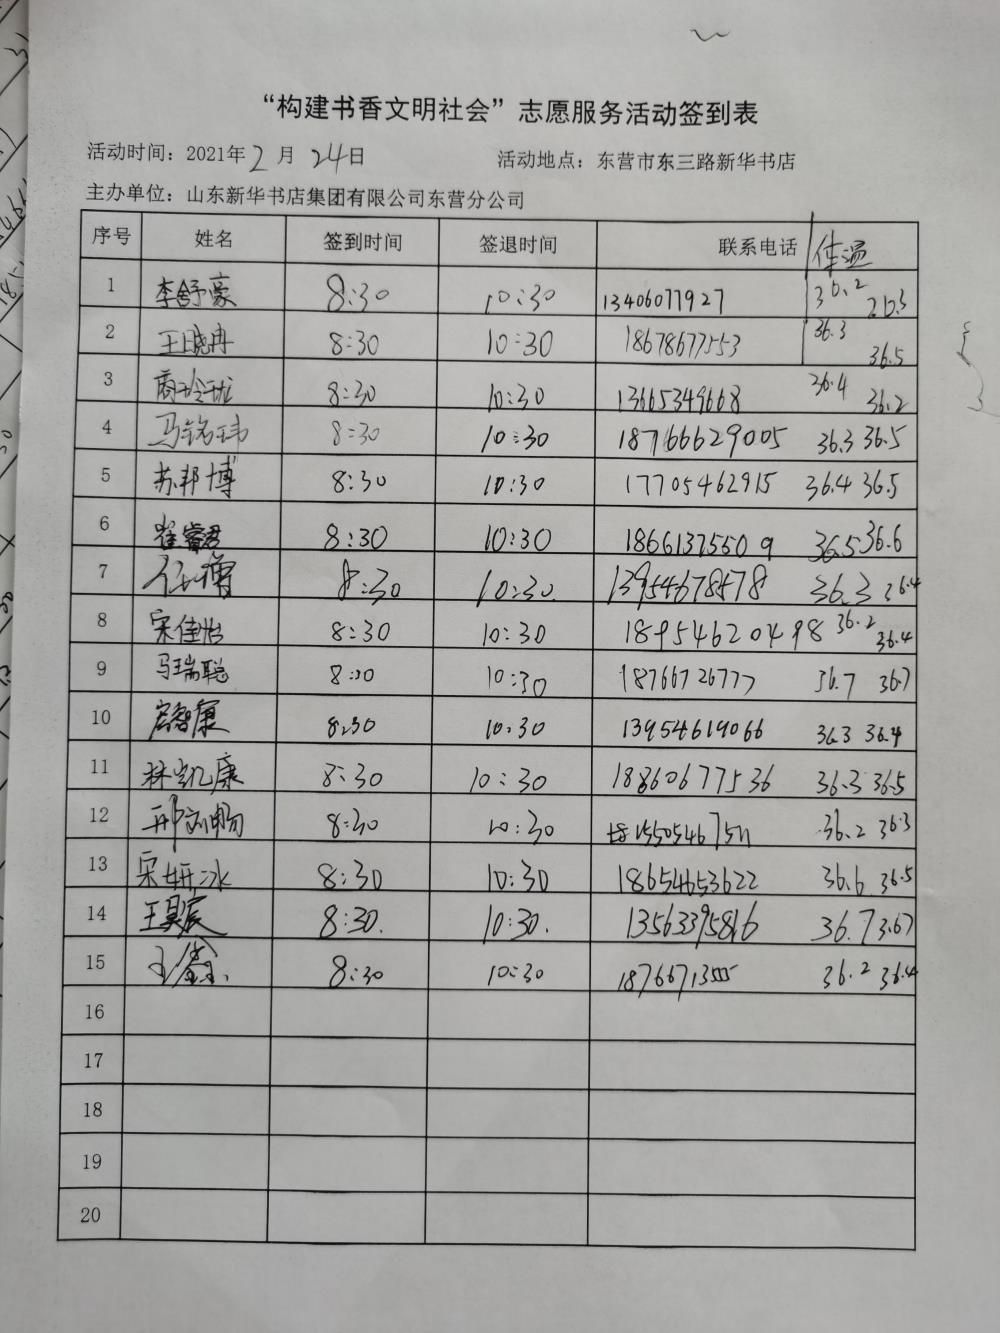 “构建书香文明社会”志愿服务活动签到表
活动时间：2021年2月24日 活动地点：东营市东三路新华书店
主办单位：山东新华书店集团有限公司东营分公司
序号 姓名 签到时间 签退时间 联系电话 体温
1 李舒豪 8:30 10:30 13406077927 36.2
2 王晓冉 8:30 10:30 18678677553 36.3 36.5
3 商玲珑 8:30 10:30 13665349668 36.4 36.2
4 马铭玮 8:30 10:30 18766629005 36.3 36.5
5 苏邦博 8:30 10:30 17705462915 36.4 36.5
6 崔睿君 8:30 10:30 18661375509 36.5 36.6
7 8:30 10:30 13954678578 36.3 36.4
8 宋佳怡 8:30 10:30 18954620498 36.2 36.4
9 马瑞聪 8:30 10:30 18766726777 36.7 36.7
10 智康 8:30 10:30 13954619066 36.3 36.4
11 林凯康 8:30 10:30 18860677536 36.3 36.5
12 邢 8:30 10:30 15505467511 36.2 36.3
13 宋妍冰 8:30 10:30 18654653622 36.6 36.5
14 王昊辰 8:30. 10:30. 13563395816 36.7 3.67
15 王鑫 8:30 10:30 18766713555 36.2 36.4
16
17
18
19
20